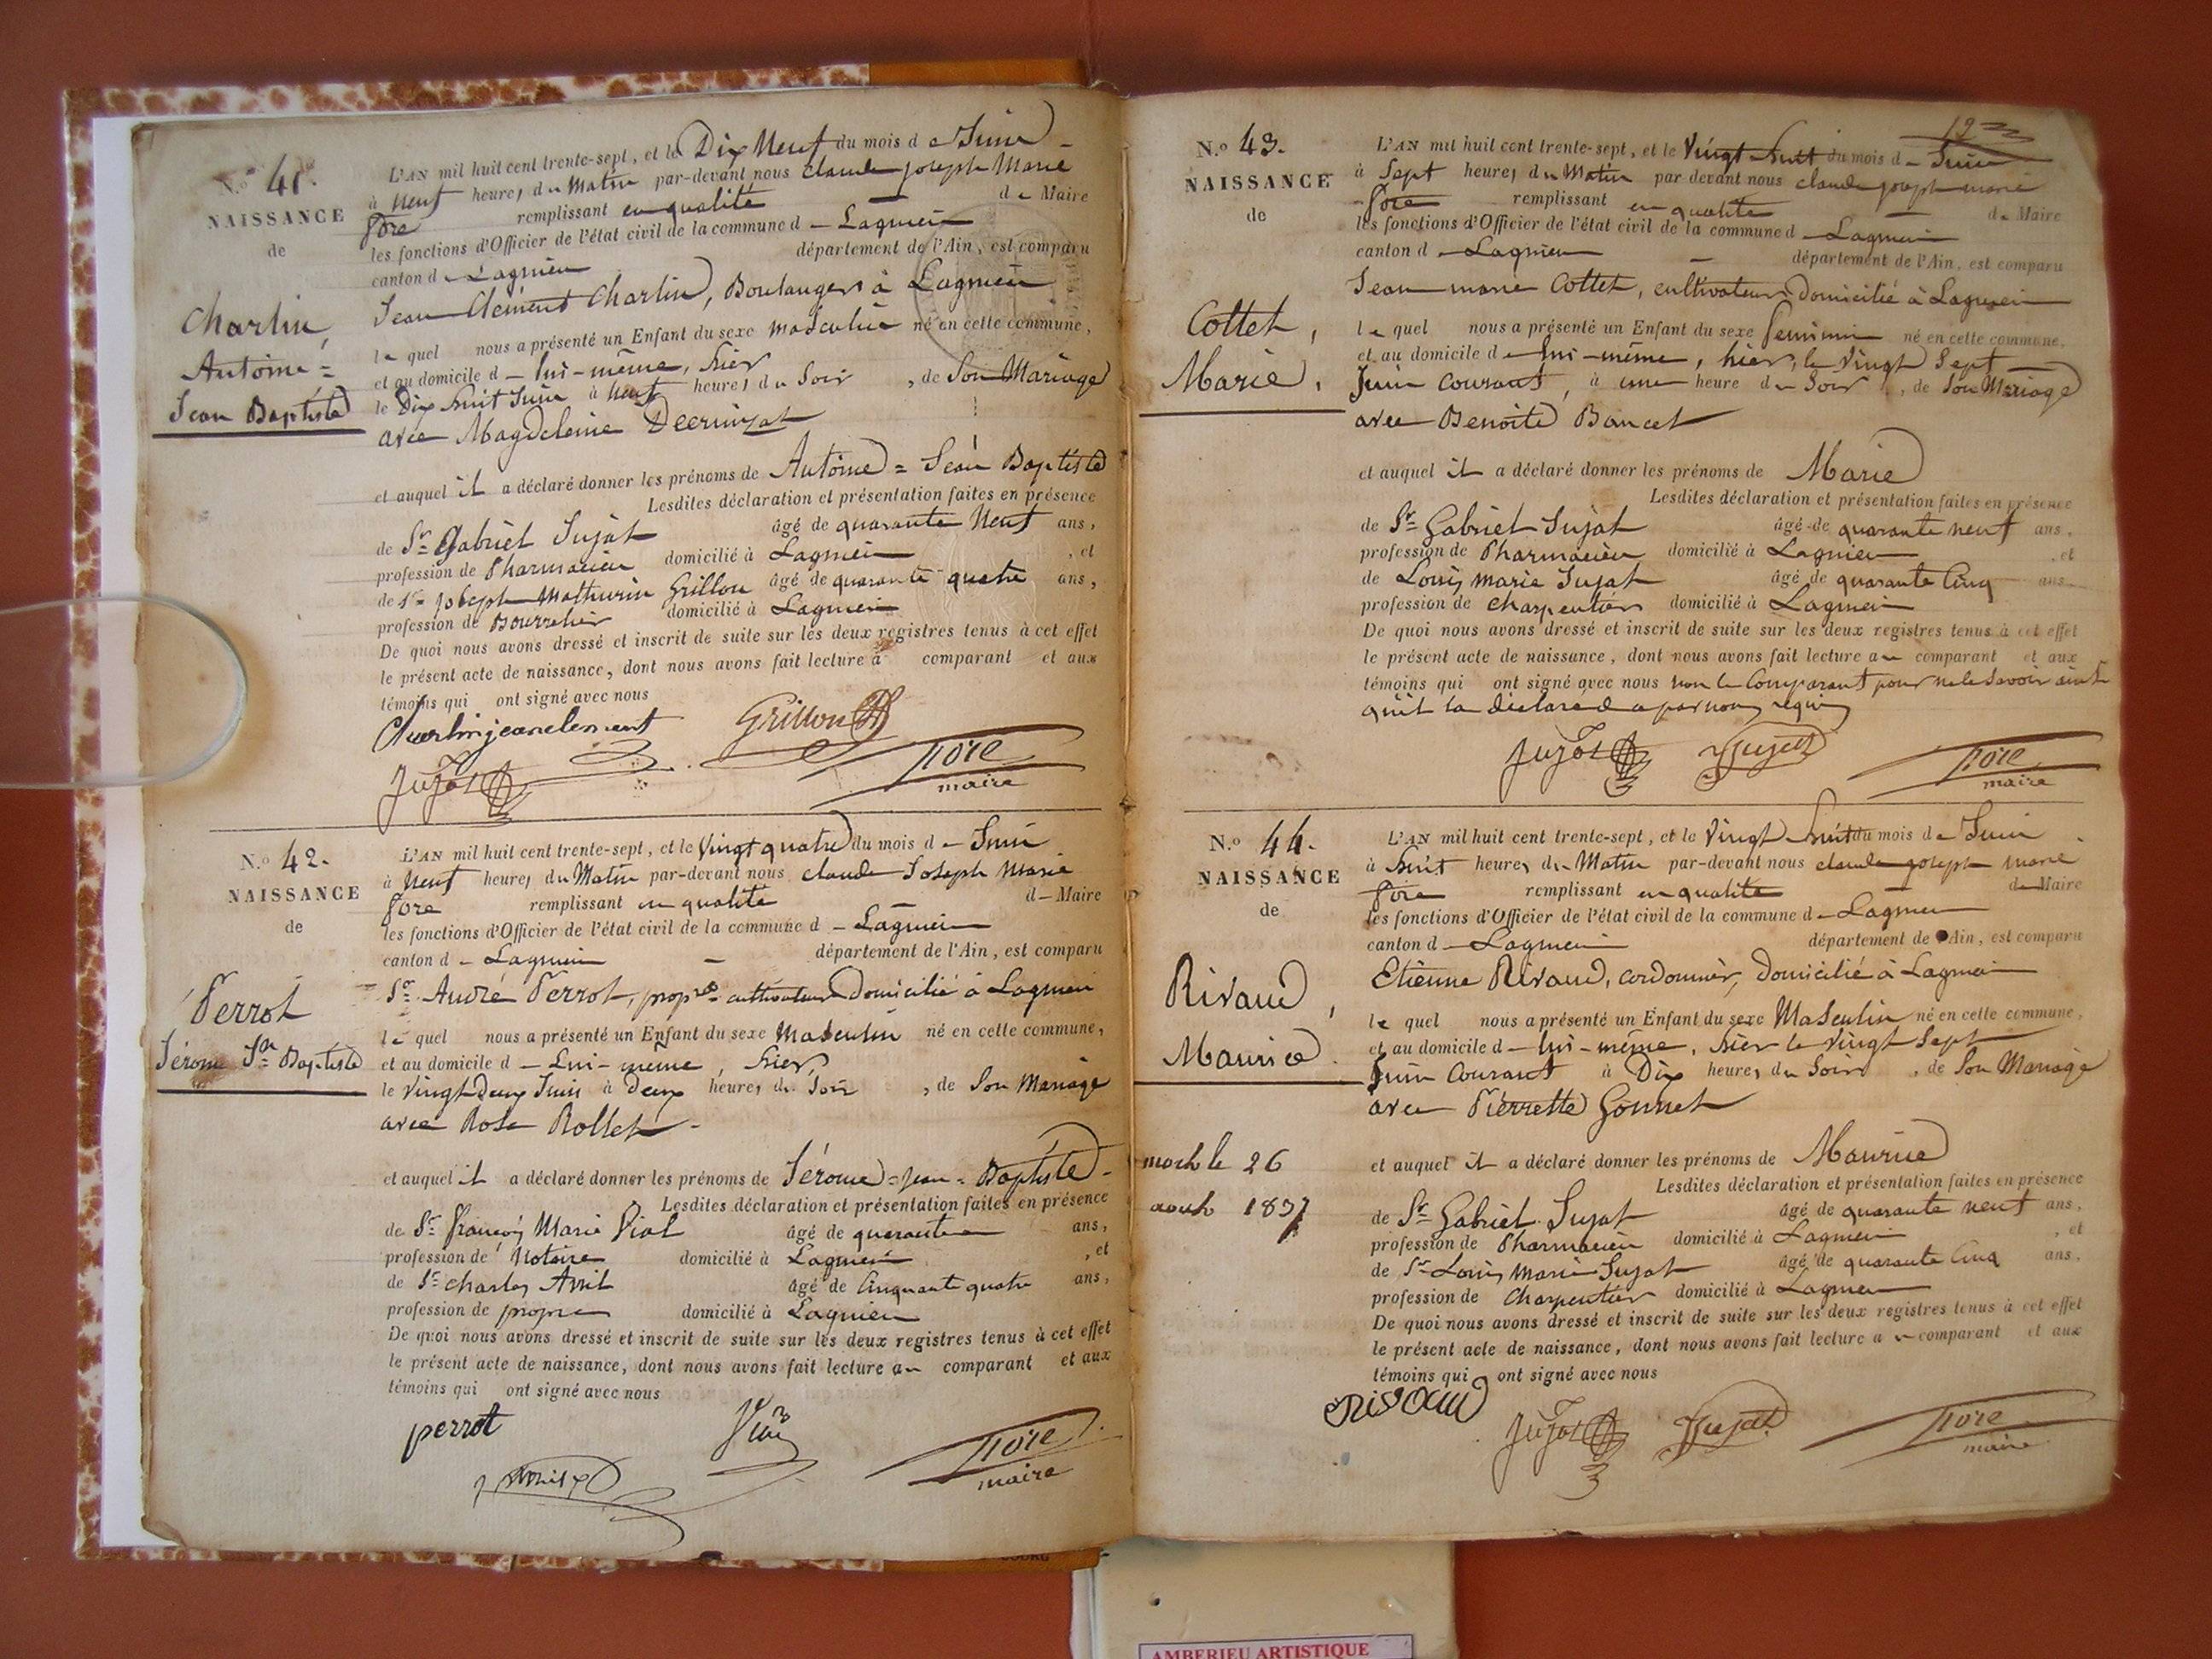 N.o 41.
NAISSANCE
de
Charlin,
Antoine =
Jean Baptiste
L'AN mil huit cent trente-sept, et le Dix Neuf du mois d e Juin
à neuf heures du Matin par-devant nous claude joseph Marie
remplissant en qualité de Maire
les fonctions d'Officier de l'état civil de la commune d – Lagnieu
canton d – Lagnieu département de l'Ain, est comparu
Jean Clément Charlin, Boulanger à Lagnieu
le quel nous a présenté un Enfant du sexe masculin né en cette commune,
et au domicile d – lui-même, hier
le Dix huit Juin à neuf heures du Soir, de Son Mariage
avec Magdeleine
et auquel il a déclaré donner les prénoms de Antoine = Jean Baptiste
Lesdites déclaration et présentation faites en présence
de Sr Gabriel Sujat âgé de quarante Neuf ans,
profession de Pharmacien domicilié à Lagnieu, et
de Sr joseph Mathurin Grillon âgé de quarante quatre ans,
profession de Bourrelier domicilié à Lagnieu
De quoi nous avons dressé et inscrit de suite sur les deux registres tenus à cet effet
le présent acte de naissance, dont nous avons fait lecture à comparant et aux
témoins qui ont signé avec nous
Charlin jean clement Grillon
Sujat
maire
N.o 42.
NAISSANCE
de
Perrot
Jérome Jn Baptiste
L'AN mil huit cent trente-sept, et le Vingt quatre du mois d e Juin
à Neuf heures du Matin par-devant nous claude Joseph Marie
remplissant en qualité d – Maire
les fonctions d'Officier de l'état civil de la commune d – Lagnieu
canton d – Lagnieu – département de l'Ain, est comparu
Sr André Perrot, propre cultivateur Domicilié à Lagnieu
le quel nous a présenté un Enfant du sexe Masculin né en cette commune,
et au domicile d – Lui-même, hier,
le Vingt Deux Juin à Deux heures du Soir, de Son Mariage
avec Rose Rollet
et auquel il a déclaré donner les prénoms de Jérome = Jean = Baptiste
Lesdites déclaration et présentation faites en présence
de Sr françois Marie Vial âgé de quarante ans,
profession de Notaire domicilié à Lagnieu, et
de Sr charles Avril âgé de Cinquante quatre ans,
profession de propre domicilié à Lagnieu
De quoi nous avons dressé et inscrit de suite sur les deux registres tenus à cet effet
le présent acte de naissance, dont nous avons fait lecture au comparant et aux
témoins qui ont signé avec nous
perrot Vial
maire
N.o 43.
NAISSANCE
de
Cottet,
Marie.
L'AN mil huit cent trente-sept, et le Vingt huit du mois d – Juin
à Sept heures du Matin par devant nous claude joseph marie
remplissant en qualité de Maire
les fonctions d'Officier de l'état civil de la commune d – Lagnieu
canton d – Lagnieu – département de l'Ain, est comparu
Jean marie Cottet, cultivateur Domicilié à Lagnieu
le quel nous a présenté un Enfant du sexe feminin né en cette commune,
et au domicile d – lui-même, hier, le Vingt Sept
Juin courant, à une heure du Soir, de Son Mariage
avec Benoite Bancet
et auquel il a déclaré donner les prénoms de Marie
Lesdites déclaration et présentation faites en présence
de Sr Gabriel Sujat âgé de quarante neuf ans,
profession de Pharmacien domicilié à Lagnieu, et
de Louis marie Sujat âgé de quarante Cinq ans
profession de charpentier domicilié à Lagnieu
De quoi nous avons dressé et inscrit de suite sur les deux registres tenus à cet effet
le présent acte de naissance, dont nous avons fait lecture au comparant et aux
témoins qui ont signé avec nous non le Comparant pour ne le Savoir ainsi
qu'il la déclaré a par nous requis
Sujat Sujat
maire
N.o 44.
NAISSANCE
de
Rivaud,
Maurice.
mort le 26
aout 1837
L'AN mil huit cent trente-sept, et le Vingt huit du mois d e Juin
à huit heures du Matin par-devant nous claude joseph marie
remplissant en qualité de Maire
les fonctions d'Officier de l'état civil de la commune d – Lagnieu
canton d – Lagnieu département de Ain, est comparu
Etienne Rivaud, cordonnier, Domicilié à Lagnieu
le quel nous a présenté un Enfant du sexe Masculin né en cette commune,
et au domicile d – lui-même, hier le Vingt Sept
Juin Courant à Dix heures du Soir, de Son Mariage
avec Pierrette Gonnet
et auquel il a déclaré donner les prénoms de Maurice
Lesdites déclaration et présentation faites en présence
de Sr Gabriel Sujat âgé de quarante neuf ans,
profession de Pharmacien domicilié à Lagnieu, et
de Sr Louis Marie Sujat âgé de quarante Cinq ans,
profession de Charpentier domicilié à Lagnieu
De quoi nous avons dressé et inscrit de suite sur les deux registres tenus à cet effet
le présent acte de naissance, dont nous avons fait lecture au comparant et aux
témoins qui ont signé avec nous
Rivaud Sujat Sujat
maire
AMBERIEU ARTISTIQUE